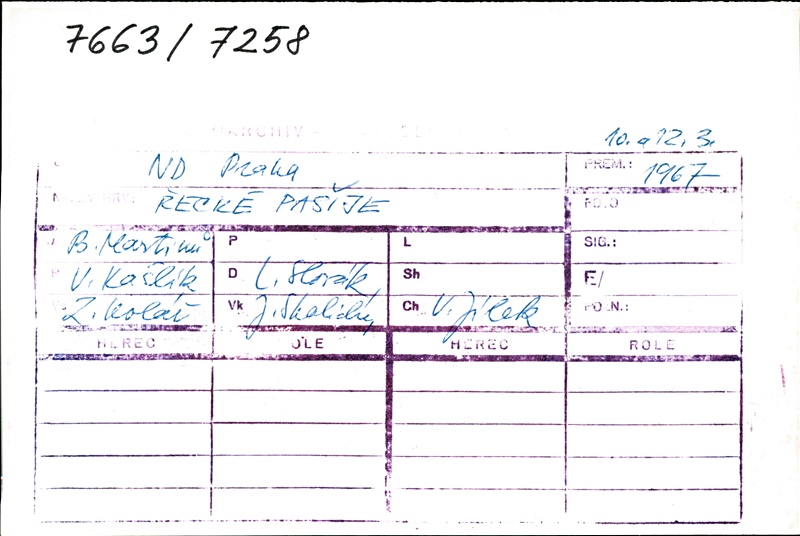 7663/7258
10. a 12. 3.
ND Praha PREM.: 1967
ŘECKÉ PAŠIJE
B. Martinů P L SIG.:
V. Kašlík D L. Slovák Sh F/
Z. Kolář Vk J. Skalický Ch V. Jílek
HEREC ROLE HEREC ROLE